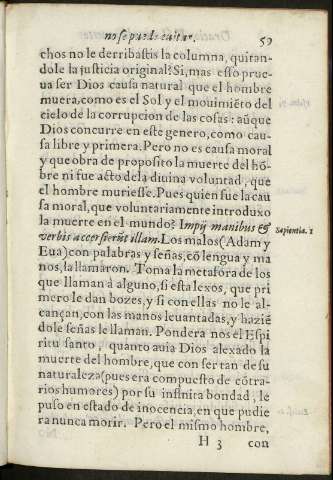 no se puede euitar. 59
chos no le derribastis la columna, quitan-
dole la justicia original? Si, mas esso prue-
ua ser Dios causa natural que el hombre
muera, como es el Sol y el mouimiẽto del
cielo de la corrupcion de las cosas: aũque
Dios concurre en este genero, como cau-
sa libre y primera. Pero no es causa moral
y que obra de proposito la muerte del hõ-
bre ni fue acto dela diuina voluntad, que
el hombre muriesse. Pues quien fue la cau
sa moral, que voluntariamente introduxo
la muerte en el mundo? Impij manibus &
verbis accersierũt illam. Los malos (Adam y
Sapientia. 1
Eua) con palabras y señas, cõ lengua y ma
nos, la llamaron. Toma la metafora de los
que llaman á alguno, si esta lexos, que pri
mero le dan bozes, y si con ellas no le al-
cançan, con las manos leuantadas, y hazié
dole señas le llaman. Pondera nos el Espi
ritu santo, quanto auia Dios alexado la
muerte del hombre, que con ser tan de su
naturaleza (pues era compuesto de cõtra-
rios humores) por su infinita bondad, le
puso en estado de inocencia, en que pudie
ra nunca morir. Pero el mismo hombre,
H 3 con